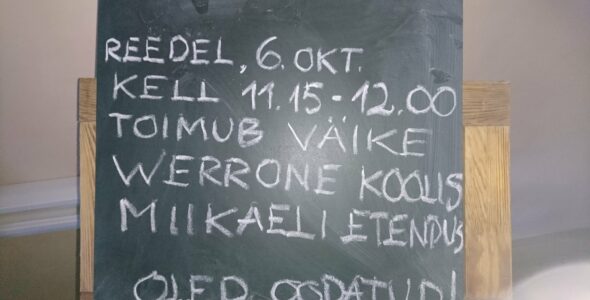 REEDEL, 6. OKT.
KELL 11.15-12.00
TOIMUB VÄIKE
WERRONE KOOLIS
MIIKAELI ETENDUS
OLED OODATUD!